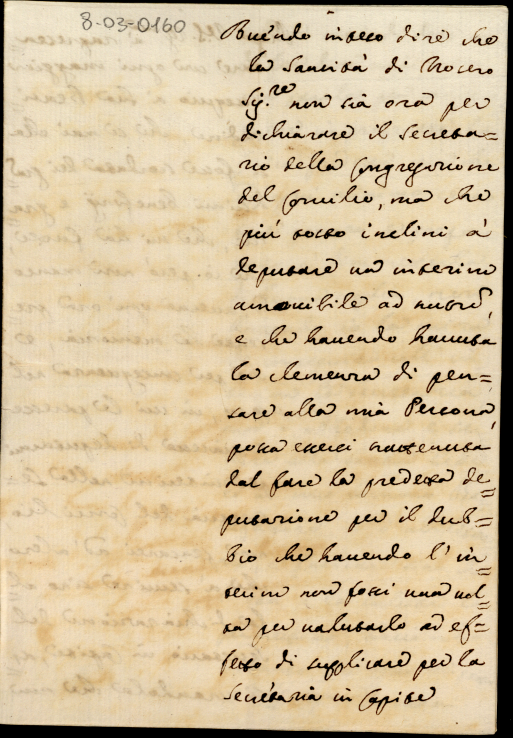 8-03-0160
Avendo inteso dire che
la Santità di Nostro
Sig.re non stà ora per
dichiarare il Secreta=
rio della Congregazione
del Concilio, ma che
più tosto inclini à
deputare un interino
amovibile ad nutum,
e che havendo havuta
la clemenza di pen=
sare alla mia Persona,
possa essersi trattenuta
dal fare la predetta de=
putazione per il dub=
bio che havendo l'in=
terino non fossi una vol=
ta per valutarlo ad ef=
fetto di supplicare per la
Secretaria in Capite